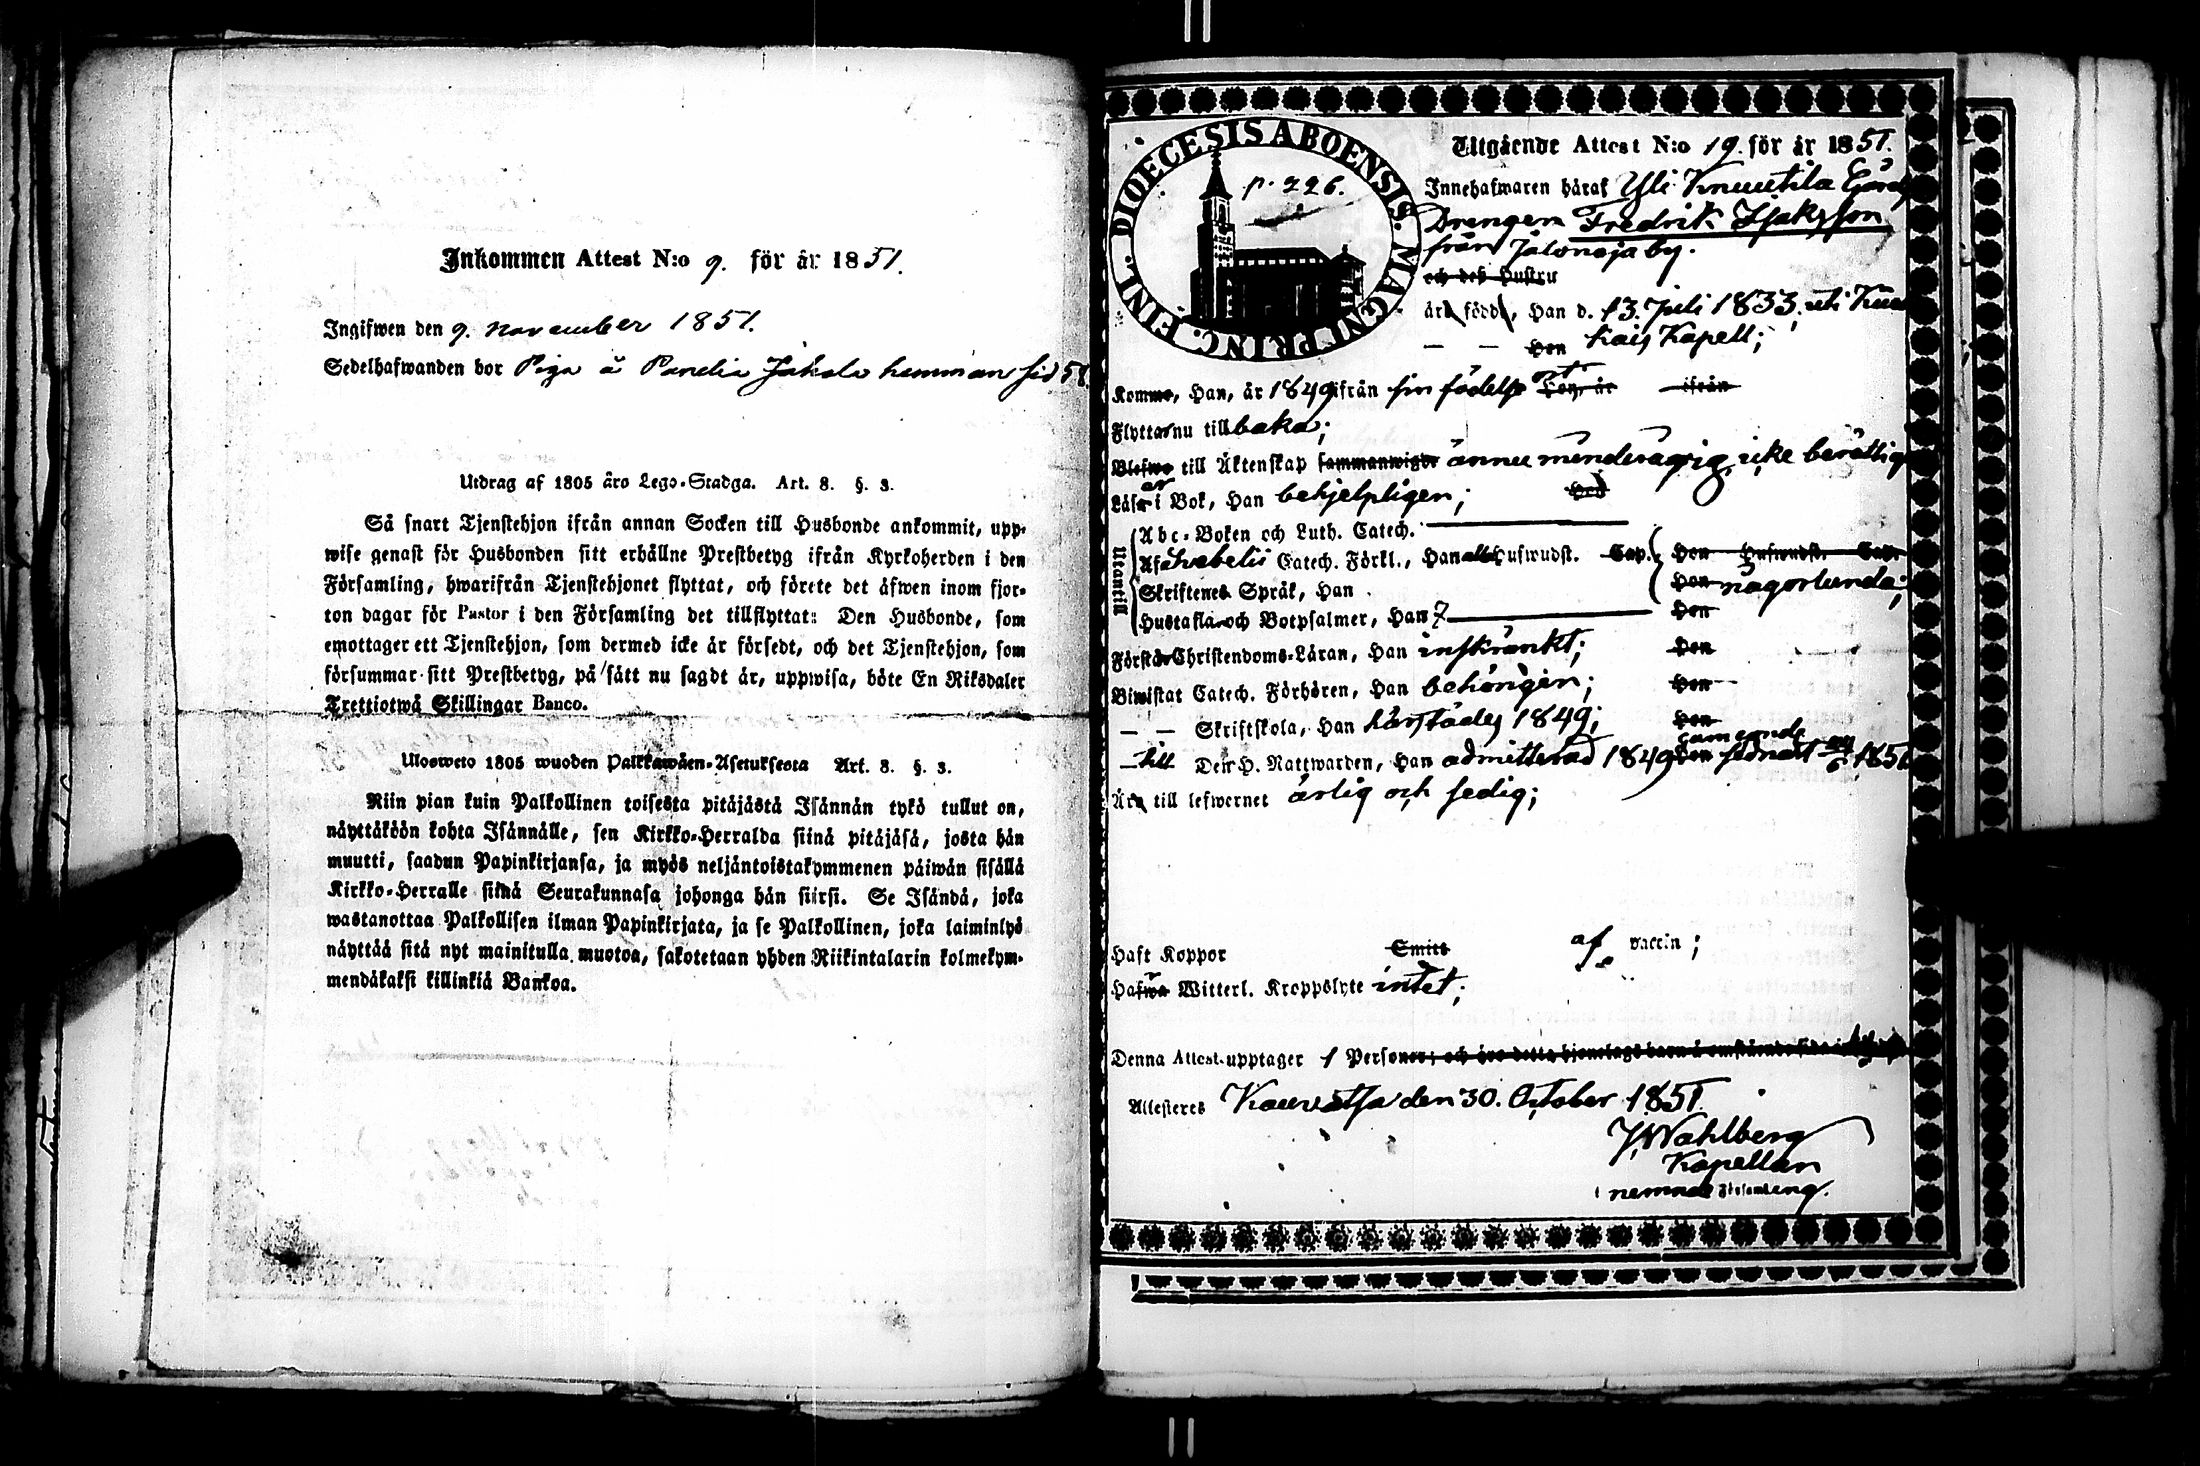 Inkommen Attest N:o 9. för år 1851.
Ingifwen den 9. november 1851.
Sedelhafwanden bor Piga å Panelia Jakola hemman sid 58.
Utdrag af 1805 åro Lego-Stadga. Art. 8. §. 3.
Så snart Tjenstehjon ifrån annan Socken till Husbonde ankommit, upp-
wise genast för Husbonden sitt erhållne Prestbetyg ifrån Kyrkoherden i den
Församling, hwarifrån Tjenstehjonet flyttat, och förete det äfwen inom fjor-
ton dagar för Pastor i den Församling det tillflyttat: Den Husbonde, som
emottager ett Tjenstehjon, som dermed icke är försedt, och det Tjenstehjon, som
försummar sitt Prestbetyg, på sätt nu sagdt är, uppwisa, böte En Riksdaler
Trettiotwå Skillingar Banco.
Ulosweto 1805 wuoden Palkkawäen-Asetuksesta Art. 8. §. 3.
Niin pian kuin Palkollinen toisesta pitäjästä Isännän tykö tullut on,
näyttäköön kohta Isännälle, sen Kirkko-Herralda siinä pitäjäsä, josta hän
muutti, saadun Papinkirjansa, ja myös neljäntoistakymmenen päiwän sisällä
Kirkko-Herralle siinä Seurakunnasa johonga hän siirsi. Se Isändä, joka
wastanottaa Palkollisen ilman Papinkirjata, ja se Palkollinen, joka laiminlyö
näyttää sitä nyt mainitulla muotoa, sakotetaan yhden Riikintalarin kolmekym-
mendäkaksi killinkiä Bankoa.
DIOECESIS ABOENSIS. MAGNI PRINC. FINL.
p. 226.
Utgående Attest N:o 19. för år 1851.
Innehafwaren häraf Yli Knuutila Gårds
Drengen Fredrik Isaksson
från Jalonoja by.
och deß Hustru
äro födde, Han d. 13. Juli 1833, uti
— — Hon Kapell;
Kommo, Han, år 1849 ifrån sin födelse ort. Hon, år ifrån
Flytta nu tillbaka;
Blefwe till Äktenskap sammanwigde ännu minderårig, icke berättigad
Läsa i Bok, Han behjelpligen; Hon
Utantill
Abc-Boken och Luth. Catech.
Af Svebelii Catech. Förkl., Han alla Hufwudst. Cap. Hon Hufwudst. Cap.
Skriftenes Språk, Han Hon någorlunda;
Hustafla och Botpsalmer, Han 7 Hon
Förstår Christendoms-Läran, Han inskränkt; Hon
Biwistat Catech. Förhören, Han behörigen; Hon
— — Skriftskola, Han härstädes 1849; Hon
till Den H. Nattwarden, Han admitterad 1849 Hon senast 1851
Är till lefwernet ärlig och sedig;
Haft Koppor Smitt af vaccin;
Hafwa Witterl. Kroppslyte intet;
Denna Attest upptager 1 Personer; och äro detta hjonelags barn å omstående sida
Attesteres Kauvatsa den 30. October 1851.
J Wahlberg
Kapellan
i nemnde Församling.